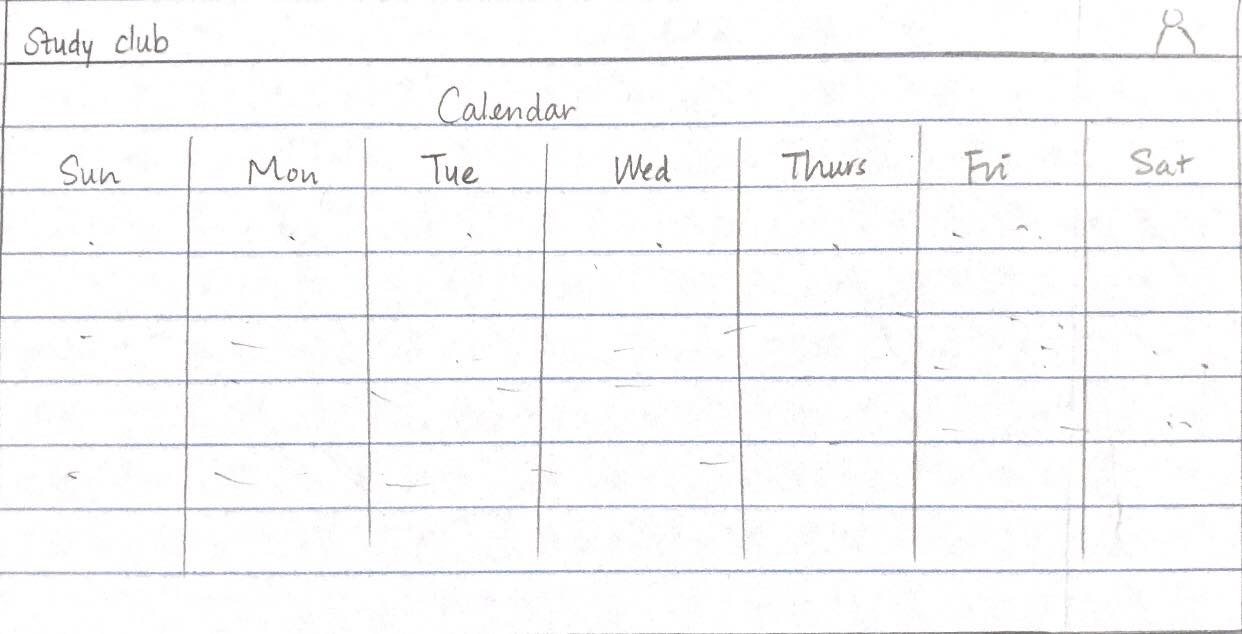 Study club
Calendar
Sun Mon Tue Wed Thurs Fri Sat